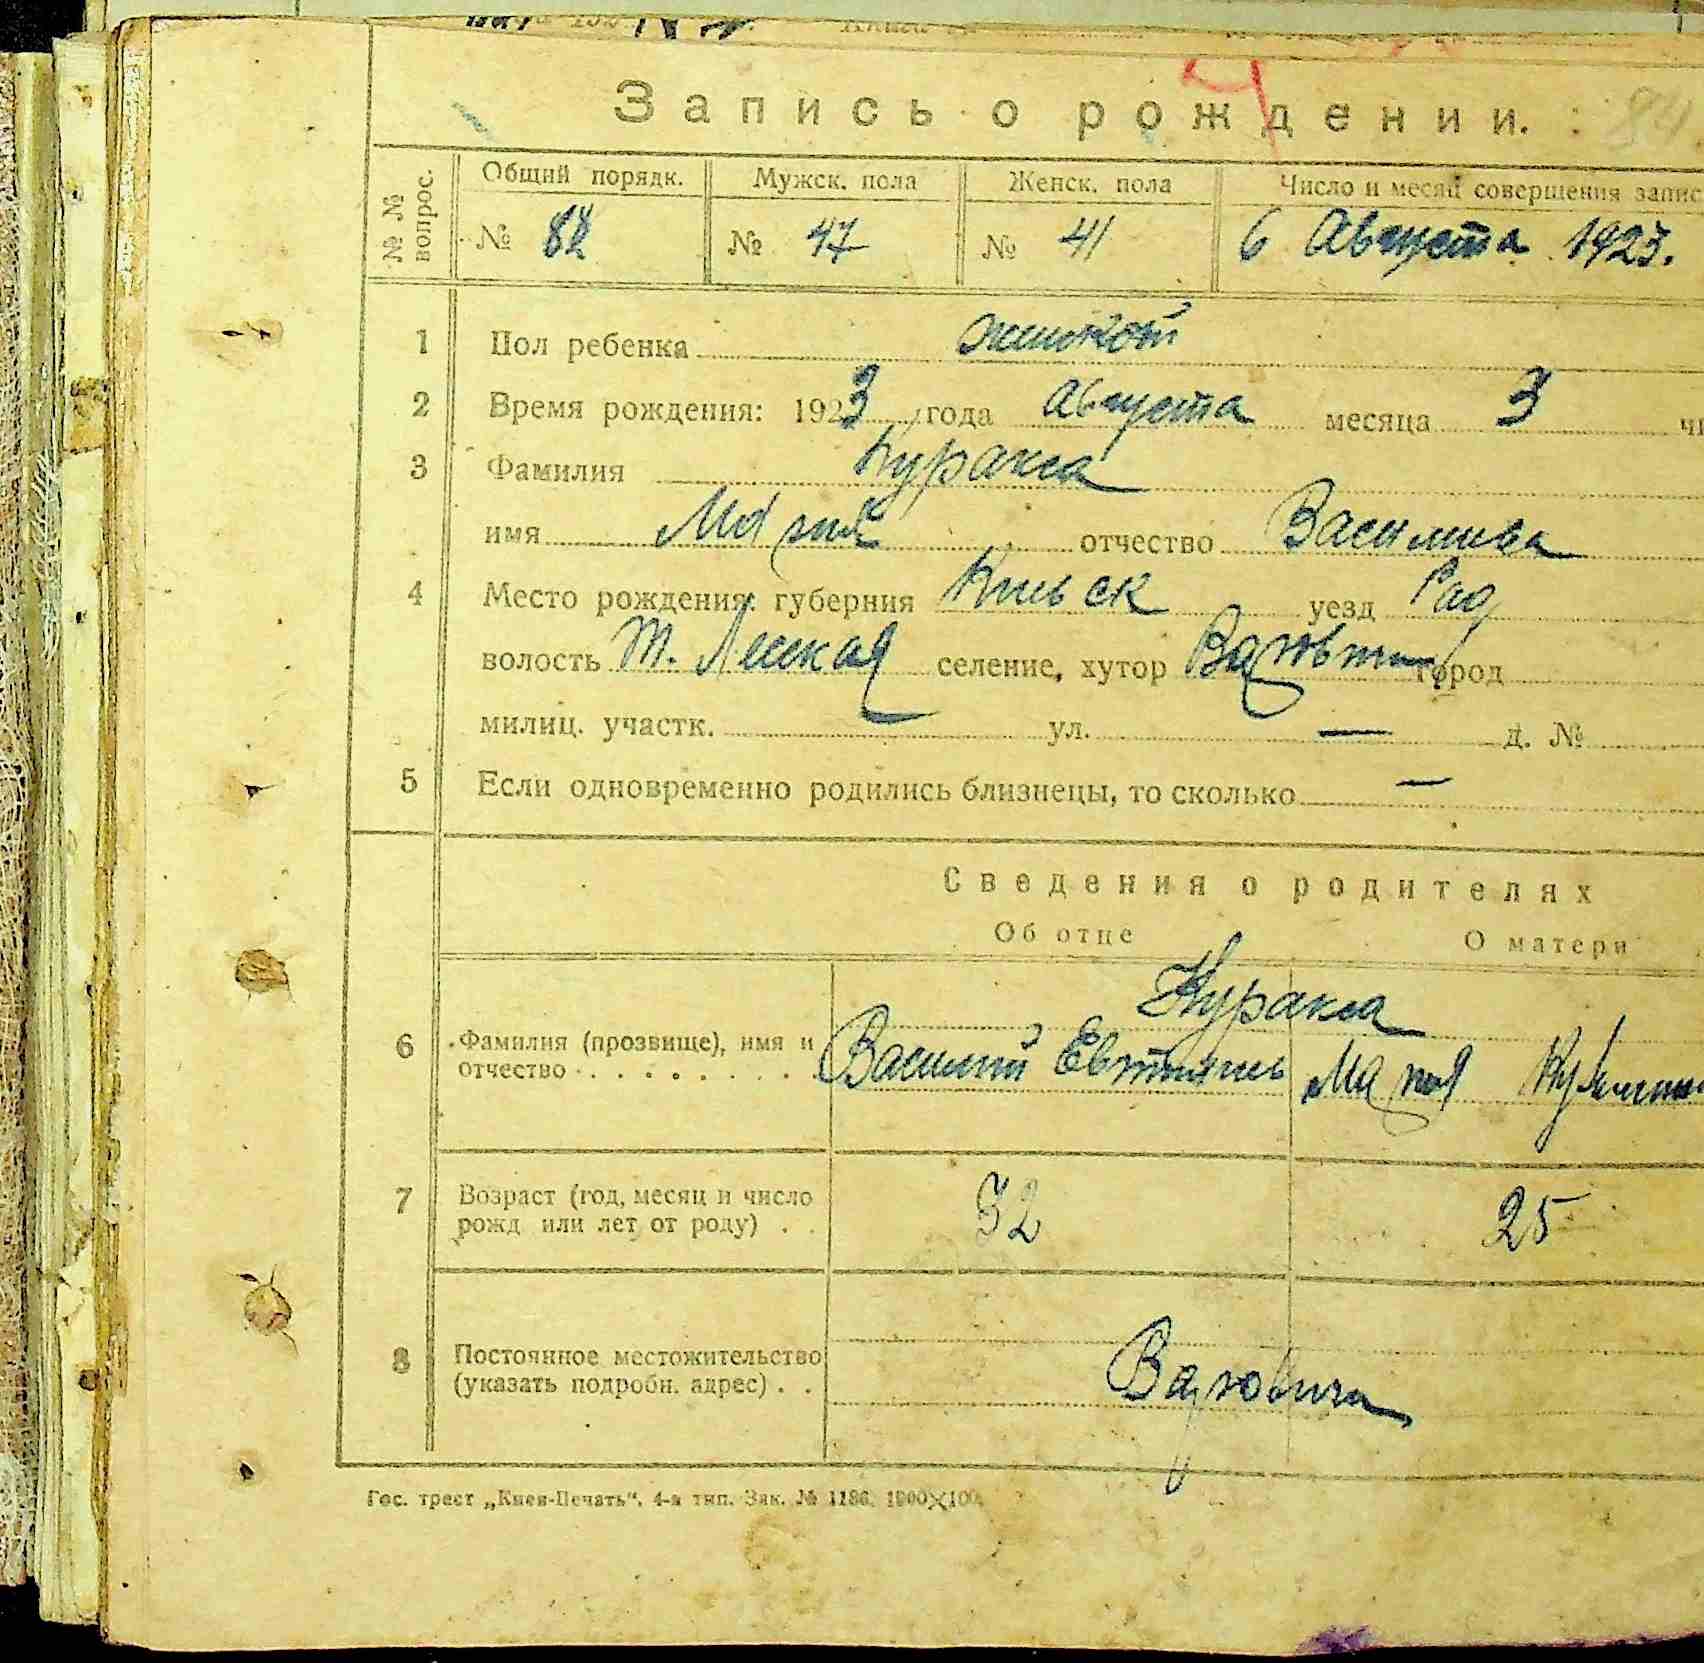 Запись о рождении.
№ № вопрос.
Общий порядк. Мужск. пола Женск. пола Число и месяц совершения запис
№ 88 № 47 № 41 6 Августа 1923.
1 Пол ребенка женской
2 Время рождения: 1923 года августа месяца 3
3 Фамилия Куракса
имя Мария отчество Васильева
4 Место рождения: губерния Киевск уезд Рад
волость М. Леская селение, хутор город
милиц. участк. ул. — д. №
5 Если одновременно родились близнецы, то сколько —
Сведения о родителях
Об отце О матери
Куракса
6 Фамилия (прозвище), имя и
отчество Василий Мария
7 Возраст (год, месяц и число
рожд или лет от роду) 32 25
8 Постоянное местожительство
(указать подробн. адрес)
Гос. трест „Киев-Печать“. 4-я тип. Зак. № 1186. 1000×100